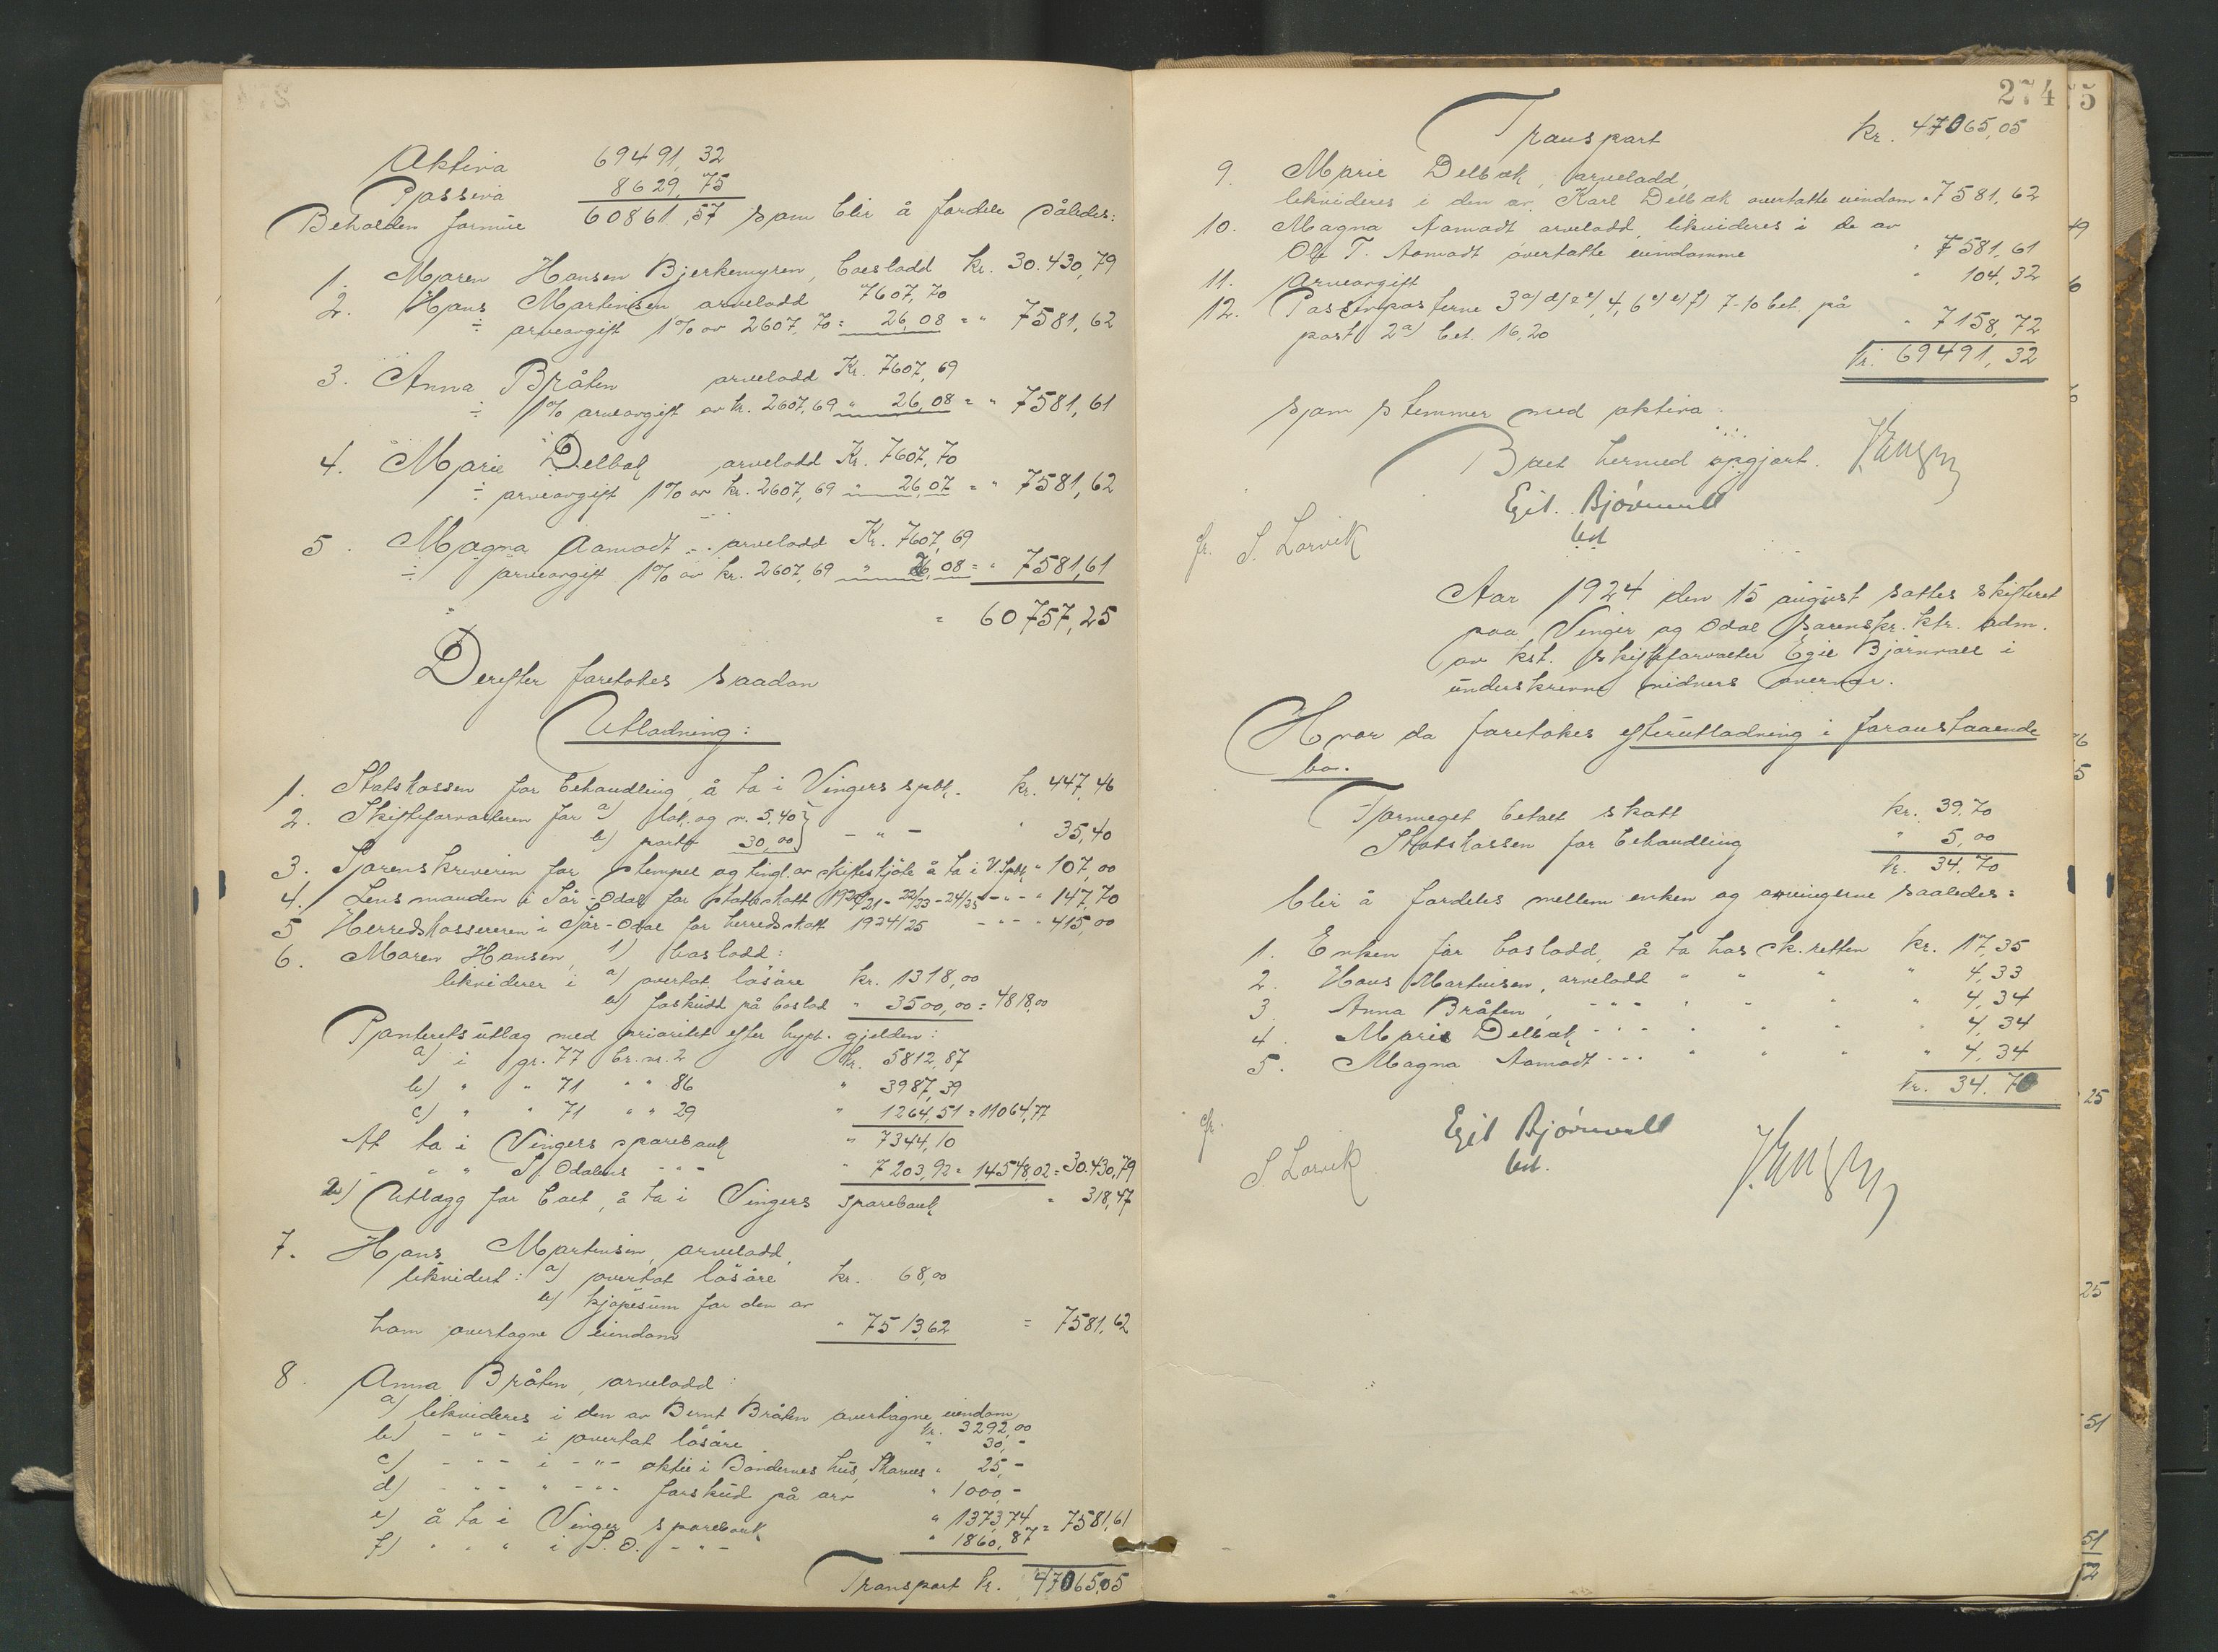 Aktiva 69491,32
Passiva 8629,75
Beholden formue 60861,57 som blir å fordele således:
1. Maren Hansen Bjerkemyren, boeslodd kr. 30.430,79
2. Hans Martinsen arvelodd 7607,70
÷ arveavgift 1% av 2607,70 = 26,08 = " 7581,62
3. Anna Bråten arvelodd Kr. 7607,69
÷ 1% arveavgift av kr. 2607,69 " 26,08 = " 7581,61
4. Marie Delbæk arvelodd Kr. 7607,70
÷ arveavgift 1% av kr. 2607,69 " 26,07 = " 7581,62
5. Magna Aamodt - arvelodd Kr. 7607,69
÷ arveavgift 1% av kr. 2607,69 " 26,08 = " 7581,61
= 60757,25
Derefter foretokes saadan
Utlodning:
1. Statskassen for behandling å ta i Vingers spbk. kr. 447,46
2. Skifteforvalteren for a) 5,40
b) porto 30,00 - " - " 35,40
3. Sorenskriveren for stempel og tingl. av skifteskjöte å ta i V. Spbk " 107,00
4. Lensmanden i Sör-Odal for statsskatt 1920/21 - 22/23 - 24/25 - " - " 147,70
5 Herredskassereren i Sör-Odal for herredsskatt 1924/25 - " - " 415,00
6. Maren Hansen, 1) boslodd:
likviderer i a) overtat lösöre kr. 1318,00
b) forskudd på boslod " 3500,00 = 4818,00
Panteretsutlæg med prioritet efter hypt. gjelden:
a) i gr. 77 br. nr. 2 kr. 5812,87
b) " " 71 " " 86 " 3987,39
c) " " 71 " " 29 " 1264,51 = 11064,77
At ta i Vingers sparebank " 7344,10
- " " S. Odalens - " - " 7203,92 = 14548,02 = 30.430,79
2) Utlægg for boet, å ta i Vingers sparebank " 318,47
7. Hans Martinsen, arvelodd,
likvidert: a) overtat lösöre kr. 68,00
b) kjöpesum for den av
ham overtagne eiendom " 7513,62 = 7581,62
8. Anna Bråten, arvelodd:
a) likvideres i den av Bernt Bråten overtagne eiendom kr. 3292,00
b) - " - i overtat lösöre " 30,-
c) - " - i - " - aktie i Böndernes hus, Skarnes " 25,-
d) - " - " - " - forskud på arv " 1000,-
e) å ta i Vinger sparebank " 1373,74
f) " " " i S. O. - " - " 1860,87 = 7581,61
Transport kr. 47065,05
274
75
Transport kr. 47065,05
9. Marie Delbæk, arvelodd,
likvideres i den av Karl Delbæk overtatte eiendom " 7581,62
10. Magna Aamodt arvelodd, likvideres i de av
Ole T. Aamodt overtatte eiendomme " 7581,61
11. Arveavgift " 104,32
12. Passivposterne 3 a) d) 4, 6 7-10 bet. på
post 2 a) bet. 16,20 " 7158,72
kr. 69491,32
som stemmer med aktiva.
Boet hermed opgjort.
Egil Bjørnvall
kst
fr. S. Lorvik
Aar 1924 den 15 august sattes skifteret
paa Vinger og Odal sorenskr. ktr. adm.
av kst. skifteforvalter Egil Björnvall i
underskrevne vidners overvær.
Hvor da foretokes efterutlodning i foranstaaende
bo.
Formeget betalt skatt kr. 39,70
Statskassen for behandling " 5,00
kr. 34,70
blir å fordeles mellem enken og arvingerne saaledes:
1. Enken for boslodd, å ta hos sk. retten kr. 17,35
2. Hans Martinsen, arvelodd " " " " 4,33
3 Anna Bråten, - " - " " " " 4,34
4. Marie Delbæk - " - " " " " 4,34
5. Magna Aamodt - " - " " " " 4,34
kr. 34,70
fr.
S. Lorvik
Egil Bjørnvall
kst.